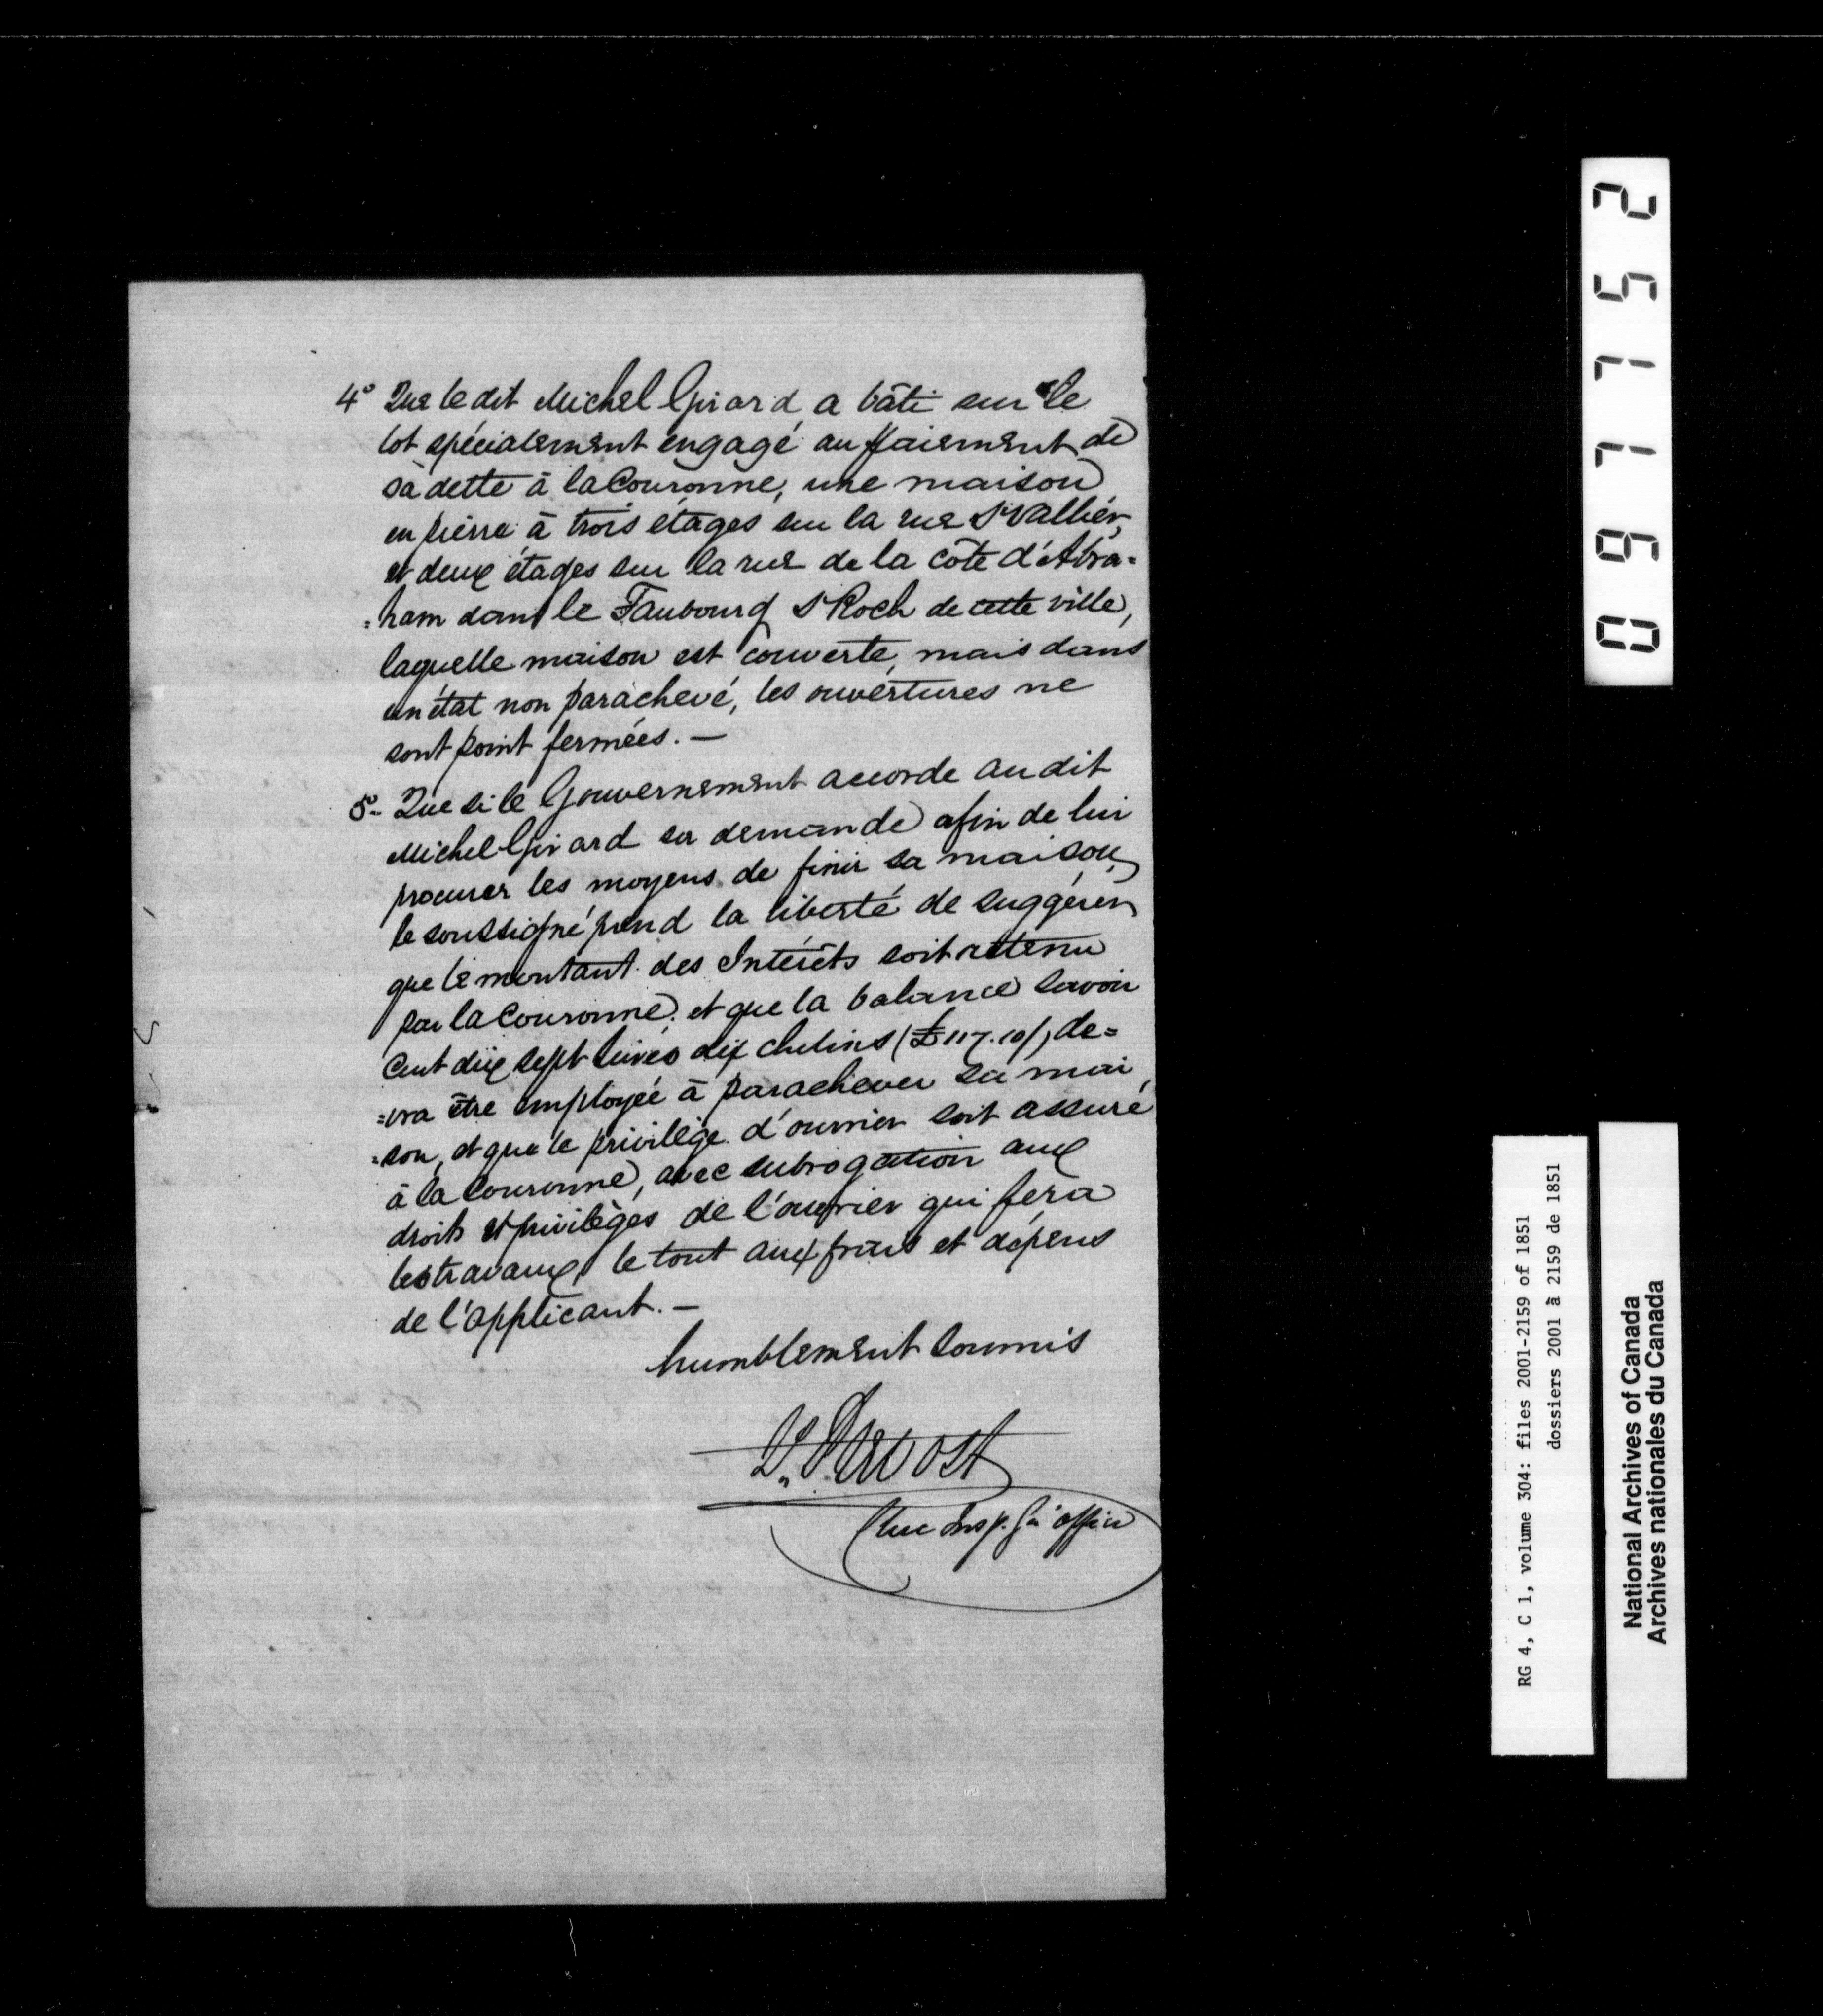 4° Que le dit Michel Girard a bâti sur le
lot spécialement engagé au paiement de
sa dette à la Couronne, une maison
en pierre à trois étages sur la rue St Vallier,
et deux étages sur la rue de la côte d'Abra=
=ham dans le Faubourg St Roch de cette ville,
laquelle maison est couverte, mais dans
un état non parachevé, les ouvertures ne
sont point fermées. —
5°- Que si le Gouvernement accorde au dit
Michel Girard sa demande afin de lui
procurer les moyens de finir sa maison,
le soussigné prend la liberté de suggérer
que le montant des Intérêts soit retenu
par la Couronne, et que la balance savoir
Cent dix sept livres dix chelins (£117.10/) de=
=vra être employée à parachever sa mai
=son, et que le privilège d'ouvrier soit assuré
à la Couronne, avec subrogation aux
droits et privilèges de l'ouvrier qui fera
les travaux, le tout aux frais et dépens
de l'applicant. —
humblement soumis
Prevost
Insp. Gn office
097152
RG 4, C 1, volume 304: files 2001-2159 of 1851
dossiers 2001 à 2159 de 1851
National Archives of Canada
Archives nationales du Canada